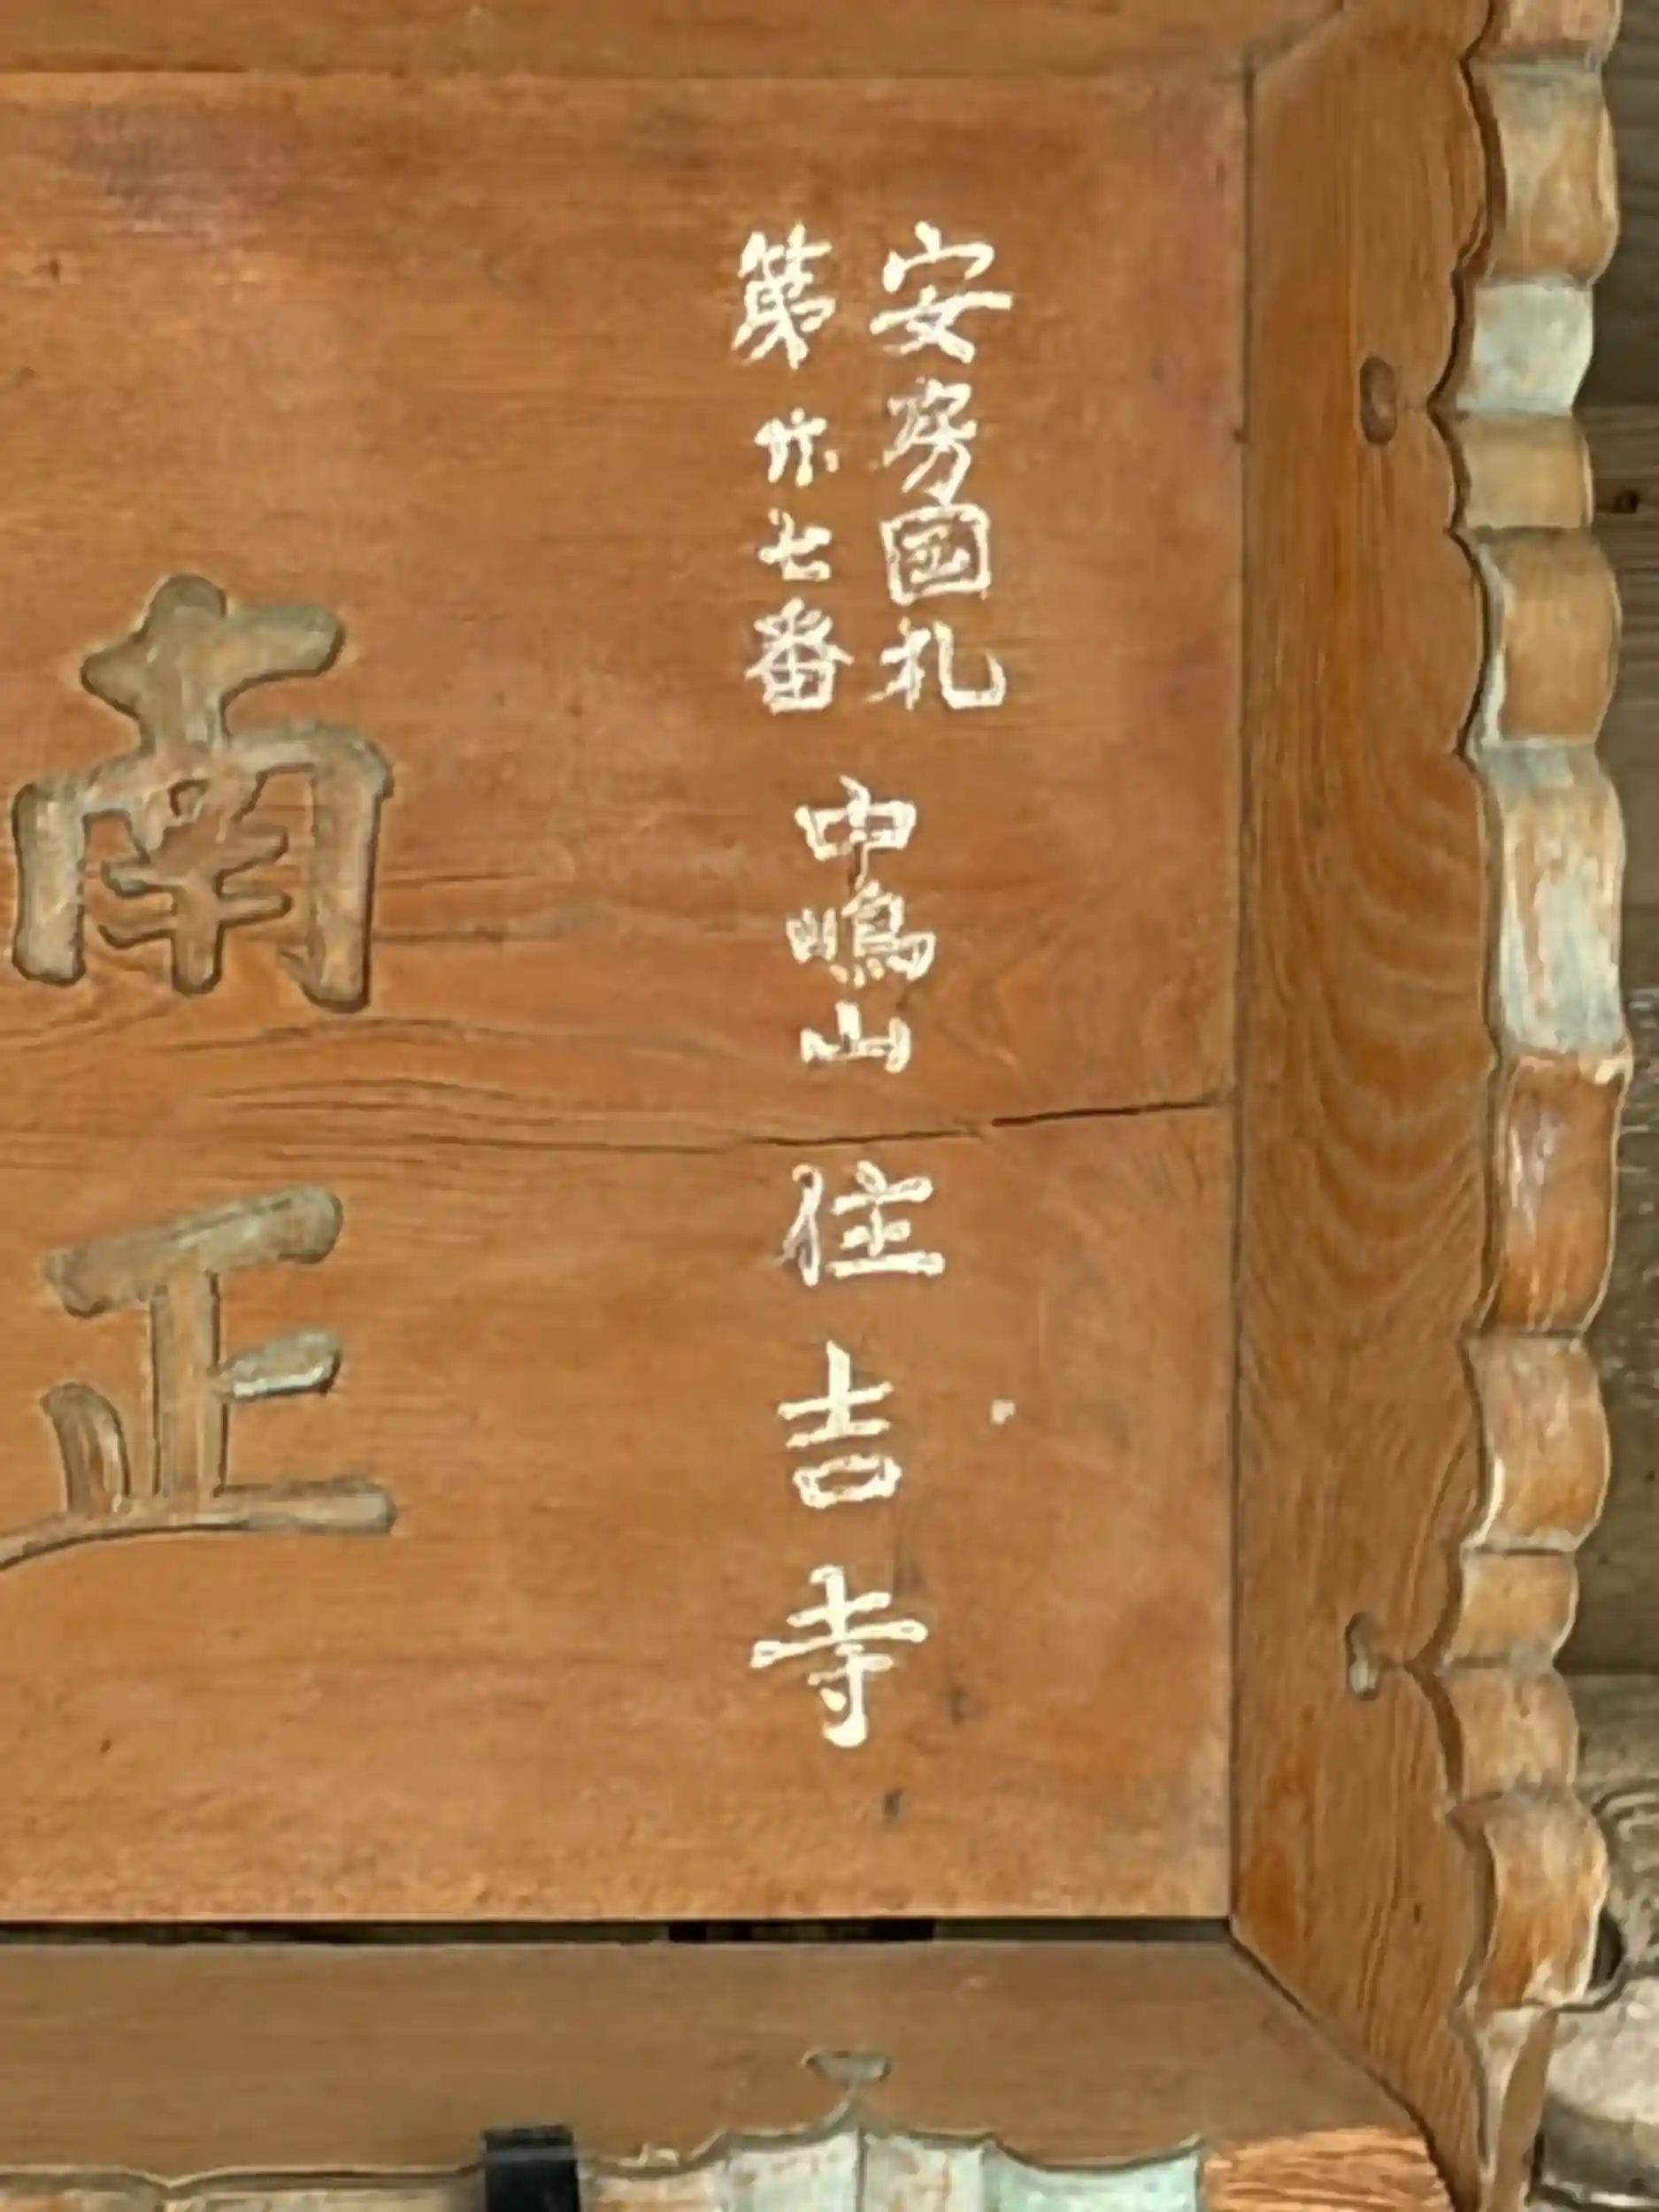 安房國札
第七番
中嶋山 住吉寺
南正